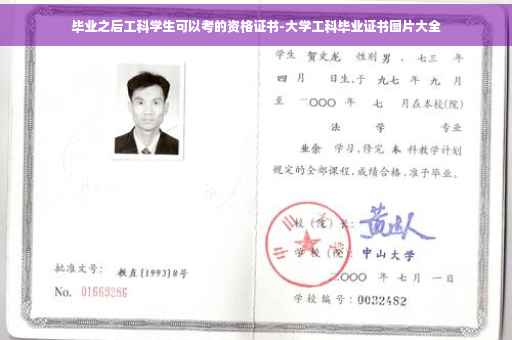 毕业之后工科学生可以考的资格证书-大学工科毕业证书图片大全
学生 贺文龙 性别 男 、七三 年
四 月 日生,于 九七 年 九 月
至 二〇〇〇 年 七 月在本校(院)
法 学 专业
业余 学习,修完 本 科教学计划
规定的全部课程,成绩合格,准予毕业。
校(院)长:
学 校(院): 中山大学
二〇〇〇 年 七 月 一 日
学校编号: 0032482
批准文号: 教直[1993]8号
No. 01669286